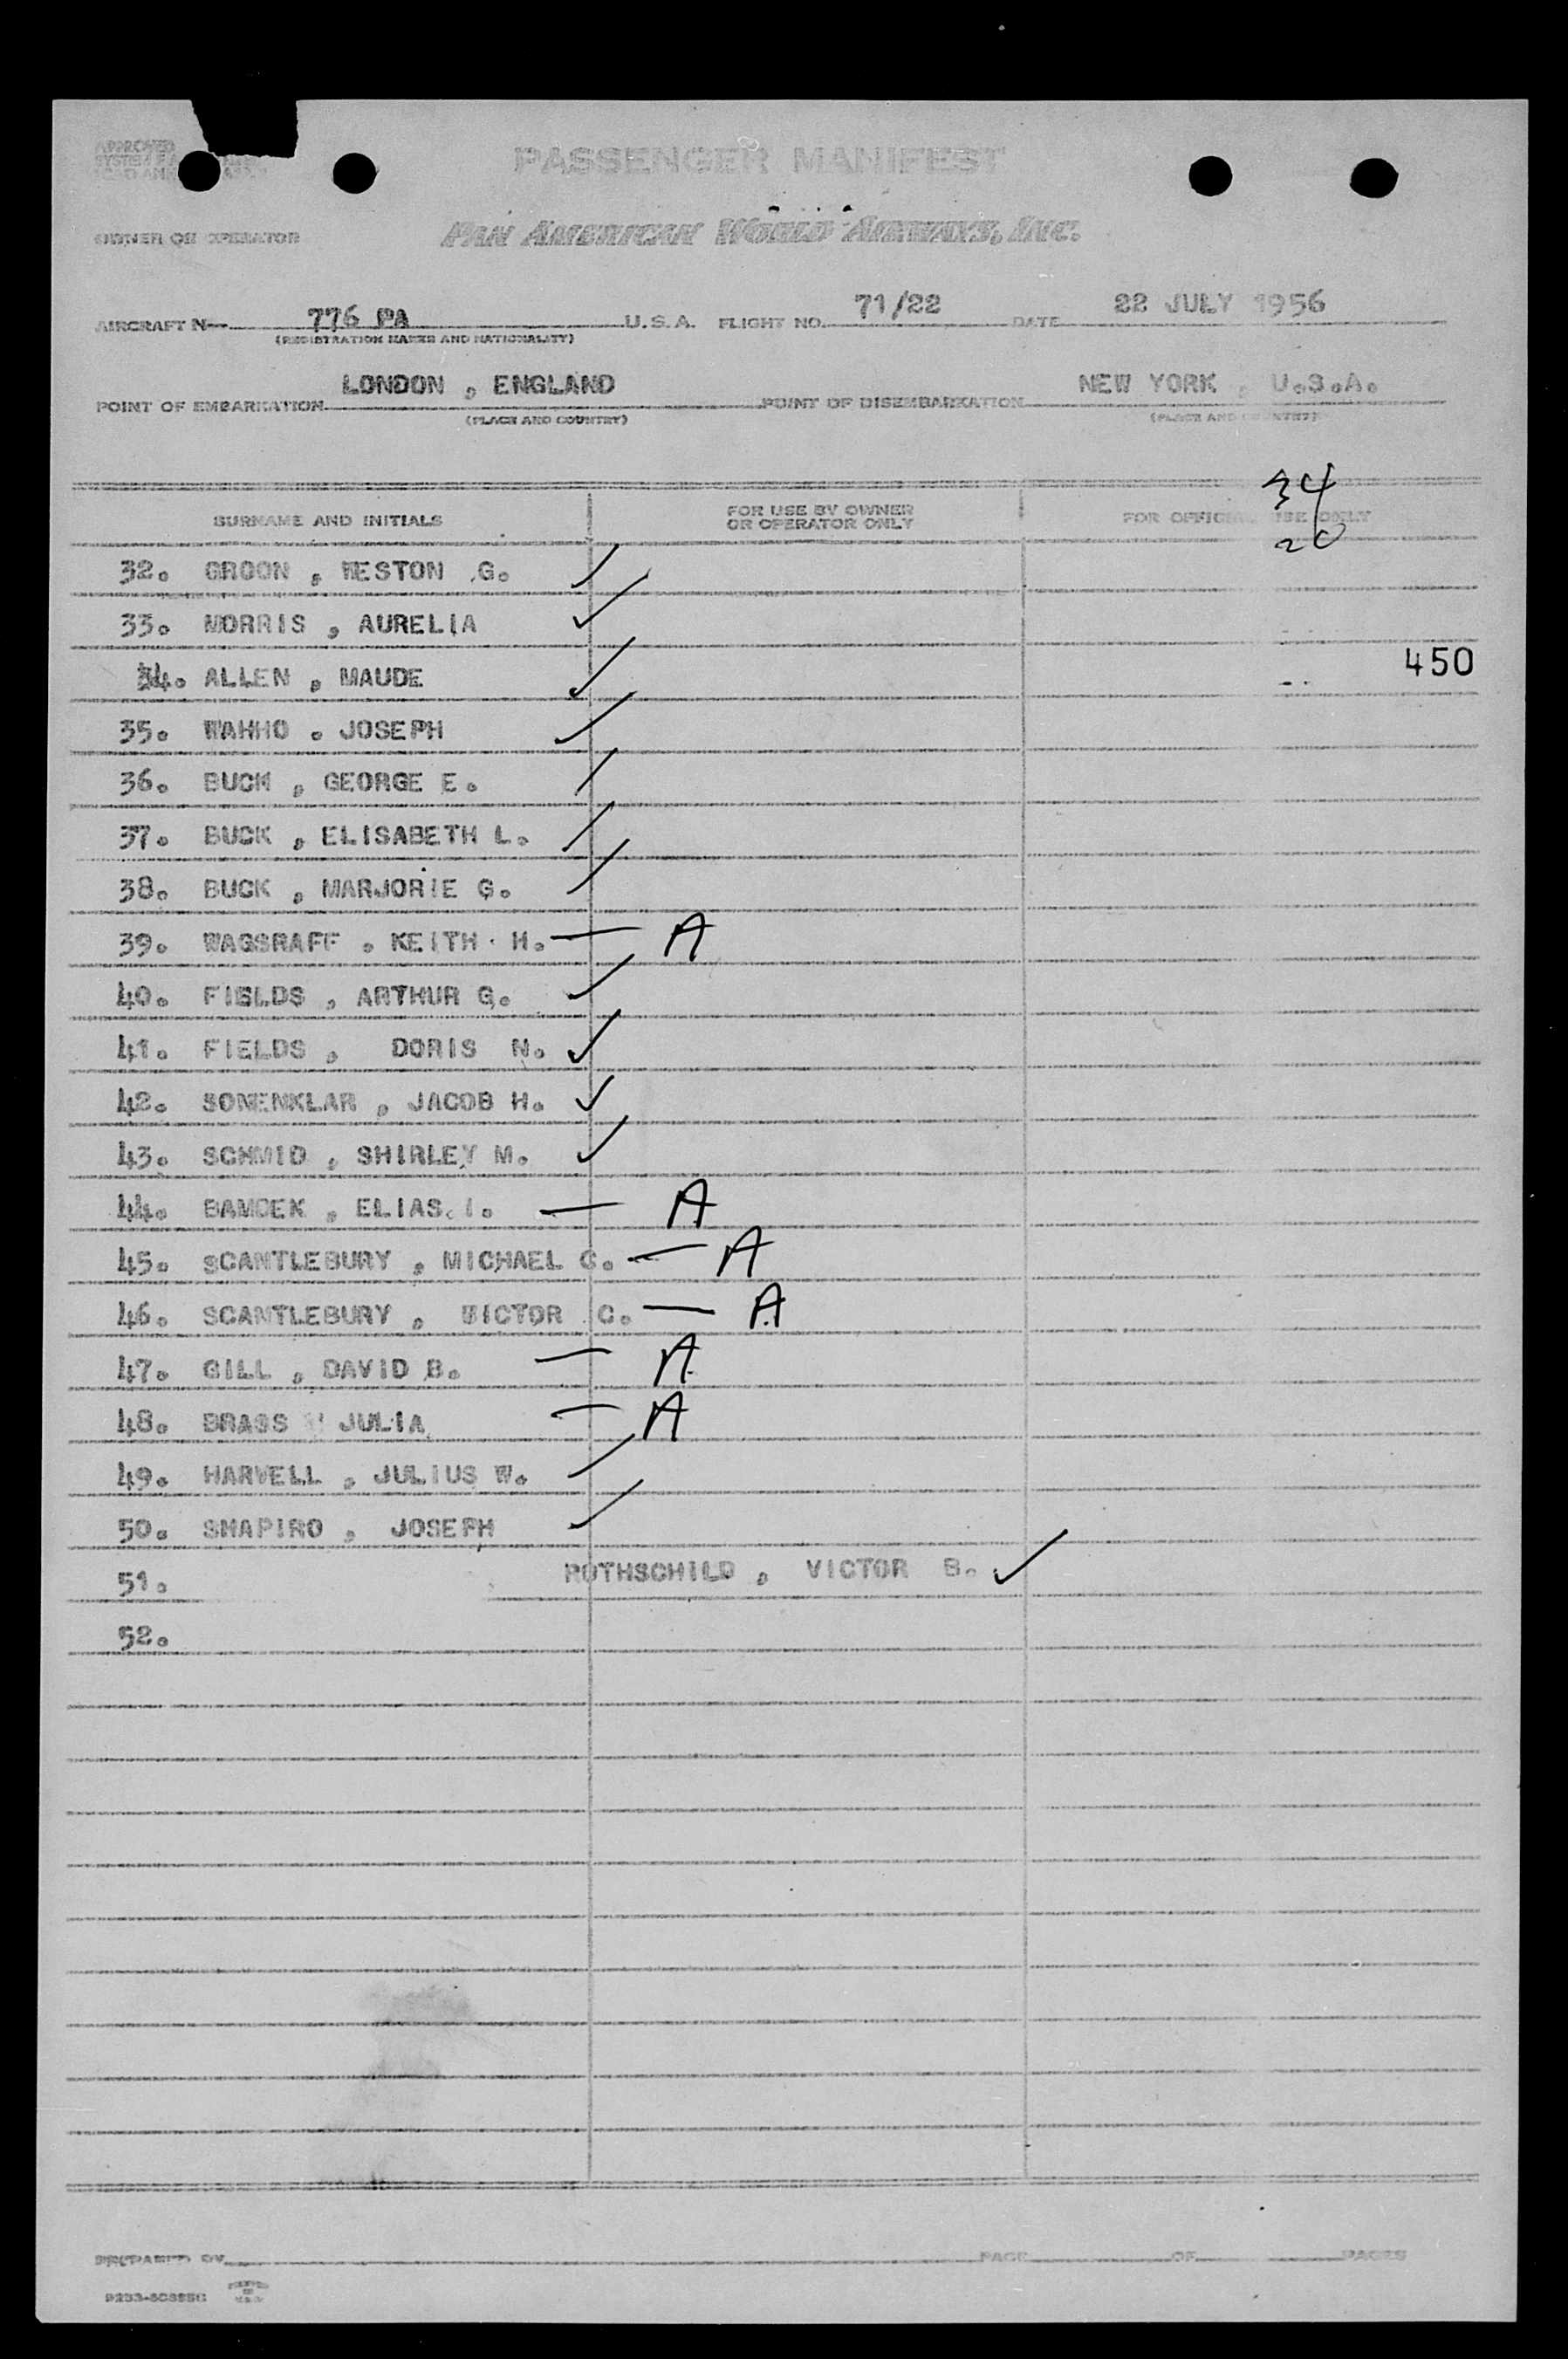 APPROVED
PASSENGER MANIFEST
OWNER OR OPERATOR PAN AMERICAN WORLD AIRWAYS, INC.
AIRCRAFT N 776 PA U.S.A. FLIGHT NO. 71/22 DATE 22 JULY 1956
(REGISTRATION MARKS AND NATIONALITY)
POINT OF EMBARKATION LONDON , ENGLAND POINT OF DISEMBARKATION NEW YORK , U.S.A.
(PLACE AND COUNTRY) (PLACE AND COUNTRY)
34
SURNAME AND INITIALS FOR USE BY OWNER OR OPERATOR ONLY FOR OFFICIAL USE ONLY
20
32. GROON , WESTON G. ✓
33. MORRIS , AURELIA ✓
34. ALLEN , MAUDE ✓ 450
35. WAHHO . JOSEPH ✓
36. BUCK , GEORGE E. /
37. BUCK , ELISABETH L. /
38. BUCK , MARJORIE G. /
39. WAGSRAFF . KEITH H. — A
40. FIELDS , ARTHUR G. ✓
41. FIELDS , DORIS N. ✓
42. SONENKLAR , JACOB H. ✓
43. SCHMID , SHIRLEY M. ✓
44. BAMDEK , ELIAS I. — A
45. SCANTLEBURY , MICHAEL C. — A
46. SCANTLEBURY , VICTOR C. — A
47. GILL , DAVID B. — A
48. BRASS JULIA — A
49. HARVELL , JULIUS W. ✓
50. SHAPIRO , JOSEPH ✓
51. ROTHSCHILD , VICTOR B. ✓
52.
PREPARED BY PAGE OF PAGES